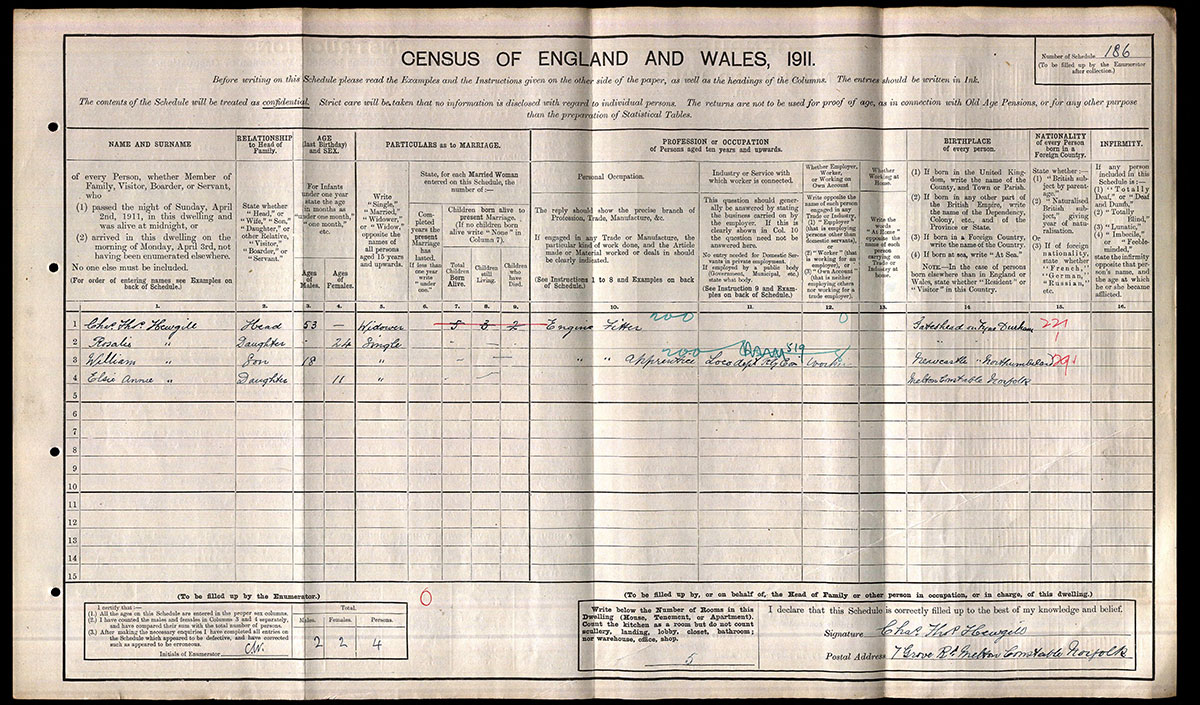 CENSUS OF ENGLAND AND WALES, 1911.
Number of Schedule 186
(To be filled up by the Enumerator
after collection.)
Before writing on this Schedule please read the Examples and the Instructions given on the other side of the paper, as well as the headings of the Columns. The entries should be written in Ink.
The contents of the Schedule will be treated as confidential. Strict care will be taken that no information is disclosed with regard to individual persons. The returns are not to be used for proof of age, as in connection with Old Age Pensions, or for any other purpose
than the preparation of Statistical Tables.
NAME AND SURNAME
of every Person, whether Member of
Family, Visitor, Boarder, or Servant,
who
(1) passed the night of Sunday, April
2nd, 1911, in this dwelling and
was alive at midnight, or
(2) arrived in this dwelling on the
morning of Monday, April 3rd, not
having been enumerated elsewhere.
No one else must be included.
(For order of entering names see Examples on
back of Schedule.)
RELATIONSHIP
to Head of
Family.
State whether
"Head," or
"Wife," "Son,"
"Daughter," or
other Relative,
"Visitor,"
"Boarder," or
"Servant."
AGE
(last Birthday)
and SEX.
For Infants
under one year
state the age
in months as
"under one month,"
"one month,"
etc.
Ages
of
Males.
Ages
of
Females.
PARTICULARS as to MARRIAGE.
Write
"Single,"
"Married,"
"Widower,"
or "Widow,"
opposite the
names of
all persons
aged 15 years
and upwards.
State, for each Married Woman
entered on this Schedule, the
number of:—
Completed
years the
present
Marriage
has
lasted.
If less than
one year
write
"under
one."
Children born alive to
present Marriage.
(If no children born
alive write "None" in
Column 7).
Total
Children
Born
Alive.
Children
still
Living.
Children
who
have
Died.
PROFESSION or OCCUPATION
of Persons aged ten years and upwards.
Personal Occupation.
The reply should show the precise branch of
Profession, Trade, Manufacture, &c.
If engaged in any Trade or Manufacture, the
particular kind of work done, and the Article
made or Material worked or dealt in should
be clearly indicated.
(See Instructions 1 to 8 and Examples on back
of Schedule.)
Industry or Service with
which worker is connected.
This question should generally
be answered by stating
the business carried on by
the employer. If this is
clearly shown in Col. 10
the question need not be
answered here.
No entry needed for Domestic Servants
in private employment.
If employed by a public body
(Government, Municipal, etc.)
state what body.
(See Instruction 9 and Examples
on back of Schedule.)
Whether Employer,
Worker,
or Working on
Own Account
Write opposite the
name of each person
engaged in any
Trade or Industry,
(1) "Employer"
(that is employing
persons other than
domestic servants),
or
(2) "Worker" (that
is working for an
employer), or
(3) "Own Account"
(that is neither
employing others
nor working for a
trade employer).
Whether
Working at
Home.
Write the
words
"At Home"
opposite the
name of each
person
carrying on
Trade or
Industry at
home.
BIRTHPLACE
of every person.
(1) If born in the United Kingdom,
write the name of the
County, and Town or Parish.
(2) If born in any other part of
the British Empire, write
the name of the Dependency,
Colony, etc., and of the
Province or State.
(3) If born in a Foreign Country,
write the name of the Country.
(4) If born at sea, write "At Sea."
NOTE.—In the case of persons
born elsewhere than in England or
Wales, state whether "Resident" or
"Visitor" in this Country.
NATIONALITY
of every Person
born in a
Foreign Country.
State whether:—
(1) "British
subject by
parentage."
(2) "Naturalised
British
subject,"
giving
year of
naturalisation.
Or
(3) If of foreign
nationality,
state whether
"French,"
"German,"
"Russian,"
etc.
INFIRMITY.
If any person
included in this
Schedule is:—
(1) "Totally
Deaf," or "Deaf
and Dumb,"
(2) "Totally
Blind,"
(3) "Lunatic,"
(4) "Imbecile,"
or "Feeble-
minded,"
state the infirmity
opposite that person's
name, and
the age at which
he or she became
afflicted.
1. 2. 3. 4. 5. 6. 7. 8. 9. 10. 11. 12. 13. 14. 15. 16.
1 Chas. Thos. Hewgill Head 53 — Widower 5 3 2 Engine Fitter 200 0 Gateshead on Tyne Durham 221
2 Rosalie " Daughter - 24 Single
3 William " Son 18 " " " Apprentice 200 Loco dept Rly Eng 519 Worker Newcastle Northumberland 291
4 Elsie Annie " Daughter 11 " Melton Constable Norfolk
5
6
7
8
9
10
11
12
13
14
15
(To be filled up by the Enumerator.)
I certify that:—
(1.) All the ages on this Schedule are entered in the proper sex columns.
(2.) I have counted the males and females in Columns 3 and 4 separately,
and have compared their sum with the total number of persons.
(3.) After making the necessary enquiries I have completed all entries on
the Schedule which appeared to be defective, and have corrected
such as appeared to be erroneous.
Initials of Enumerator
Total.
Males. Females. Persons.
2 2 4
0
(To be filled up by, or on behalf of, the Head of Family or other person in occupation, or in charge, of this dwelling.)
Write below the Number of Rooms in this
Dwelling (House, Tenement, or Apartment).
Count the kitchen as a room but do not count
scullery, landing, lobby, closet, bathroom;
nor warehouse, office, shop.
5
I declare that this Schedule is correctly filled up to the best of my knowledge and belief.
Signature Chas. Thos. Hewgill
Postal Address 7 Grove Rd. Melton Constable Norfolk